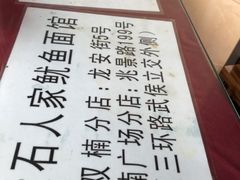 石人家鱿鱼面馆
双楠分店：龙安街5号
南广场分店：兆景路199号
三环路武侯立交外侧）